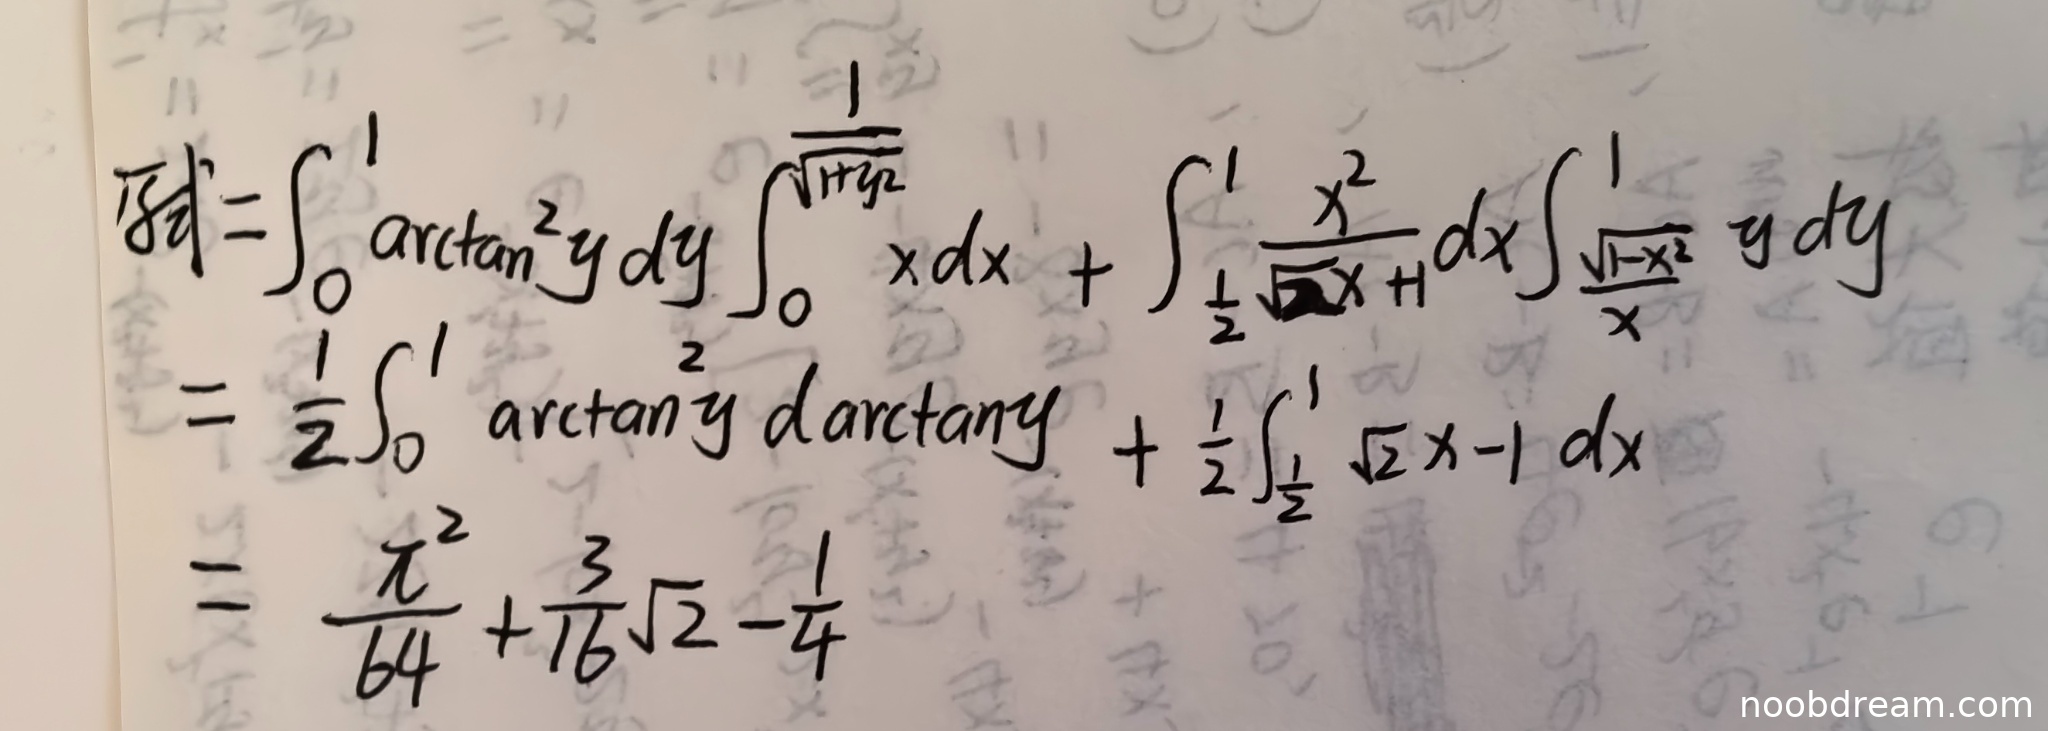 原式 = ∫₀¹ arctan²y dy ∫₀^{1/√(1+y²)} x dx + ∫_{1/2}^{1} x²/(√2x+1) dx ∫_{√(1-x²)/x}^{1} y dy
= 1/2 ∫₀¹ arctan²y d arctany + 1/2 ∫_{1/2}^{1} √2x-1 dx
= π²/64 + 3/16 √2 - 1/4
noobdream.com